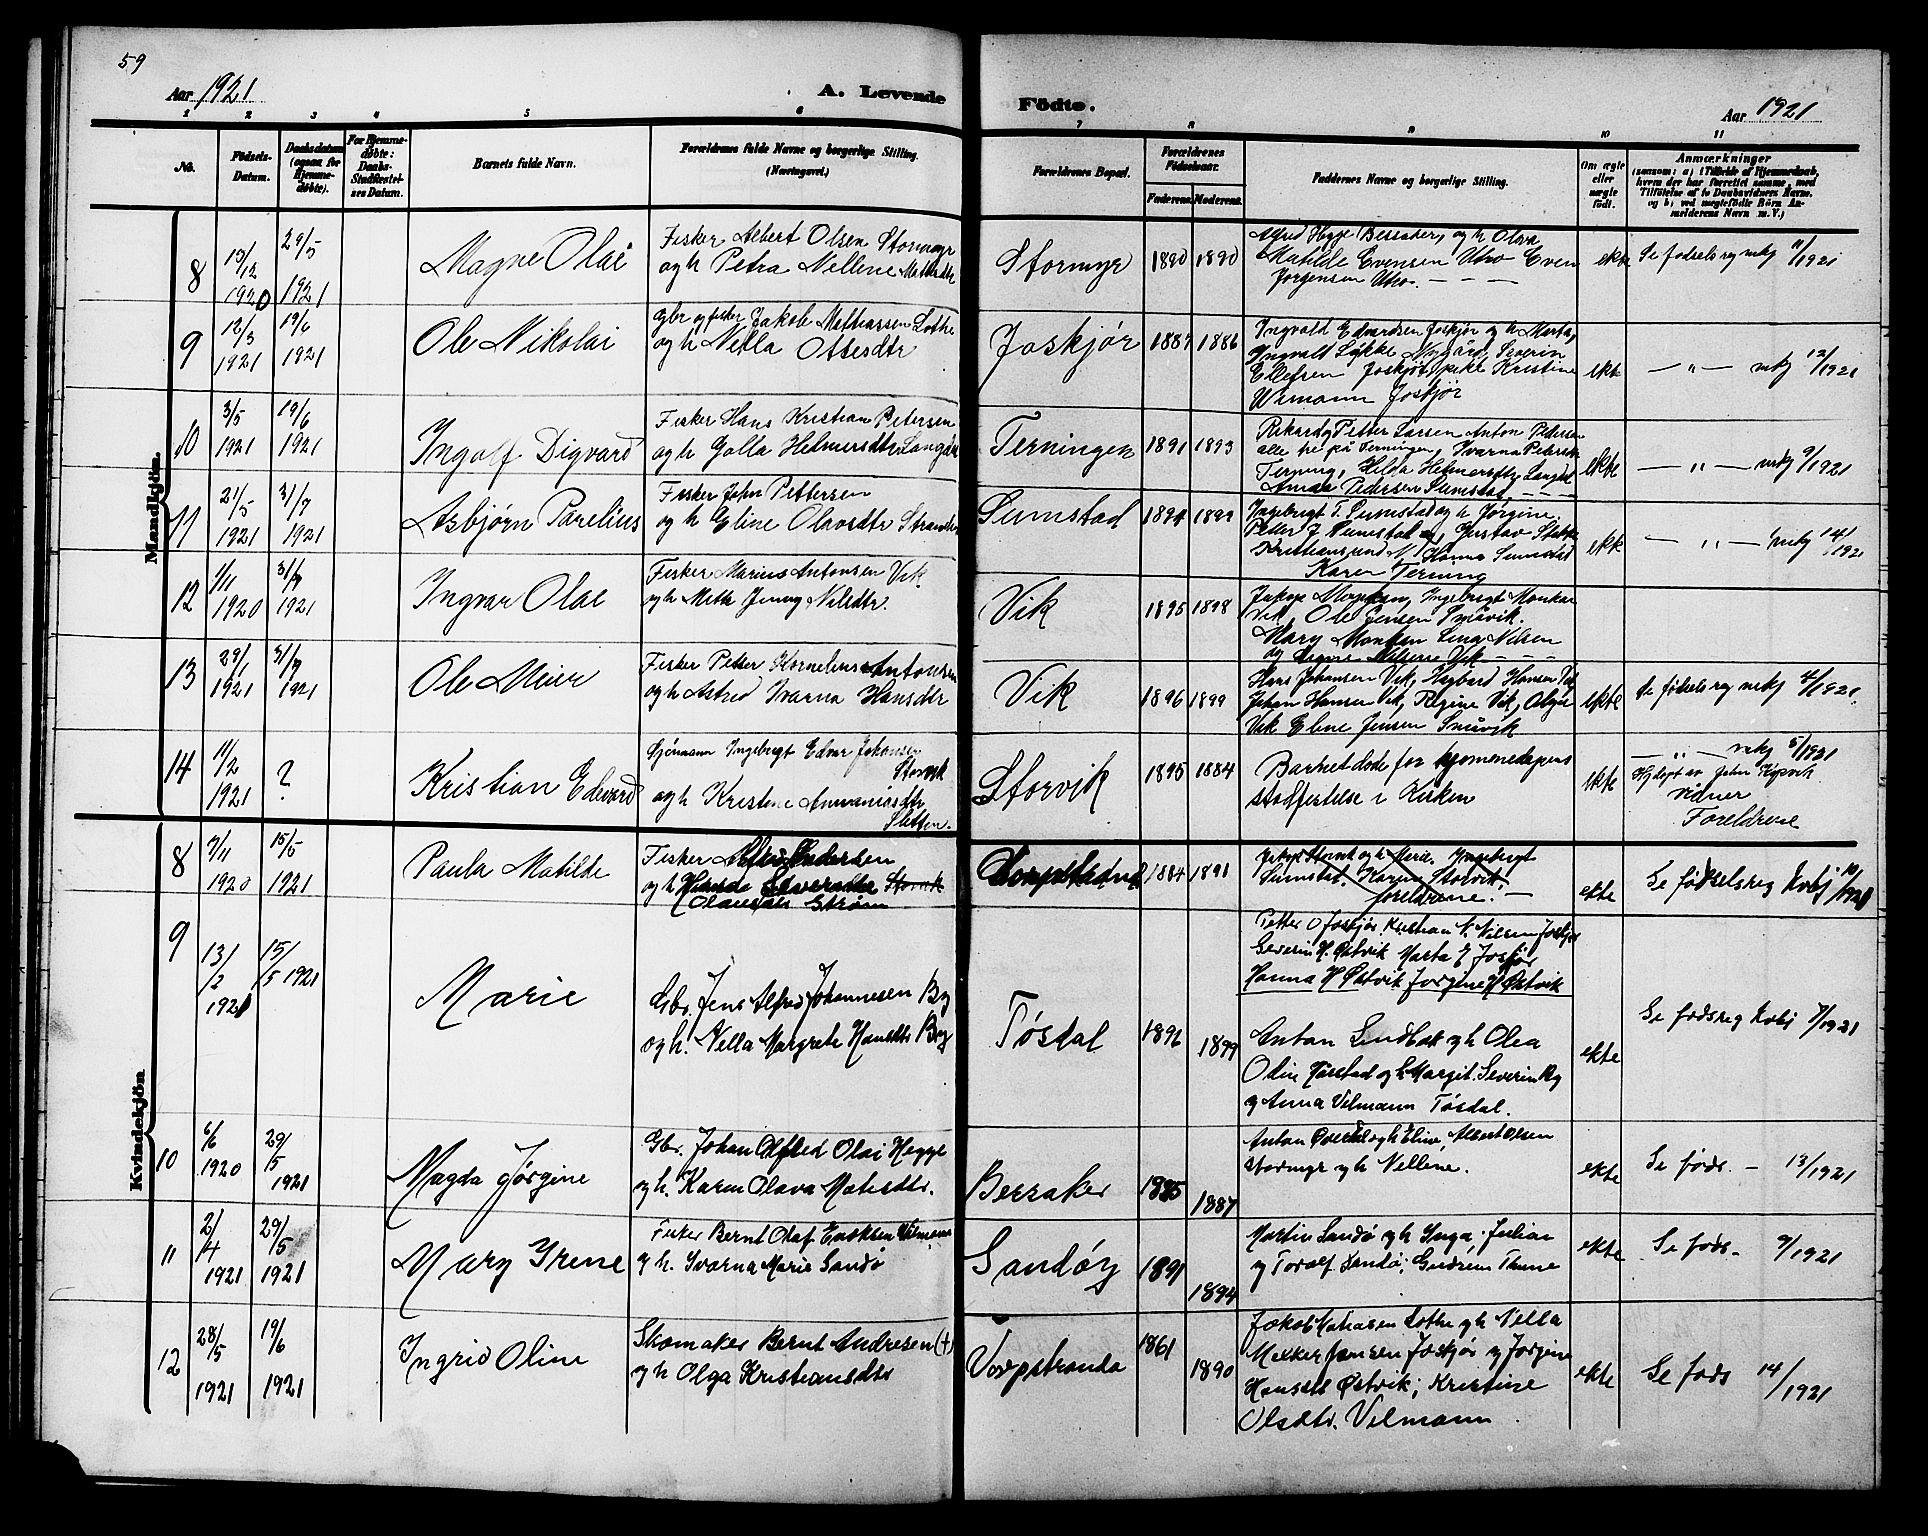 59
Aar 1921
A. Levende
Födte.
Aar 1921
1 2 3 4 5 6 7 8 9 10 11
No.
Födsels-
Datum.
Daabsdatum
(ogsaa for
Hjemme-
döbte).
For Hjemme-
döbte:
Daabs-
Stadfæstel-
ses Datum.
Barnets fulde Navn.
Forældrenes fulde Navne og borgerlige Stilling.
(Næringsvei.)
Forældrenes Bopæl.
Forældrenes
Födselsaar.
Faderens. Moderens.
Faddernes Navne og borgerlige Stilling.
Om ægte
eller
uægte
födt.
Anmærkninger
Mandkjön.
8
13/12
1920
29/5
1921
Magne Olai
Fisker Albert Olsen Stormyr
og h Petra Nellene
Stormyr
1890 1890
Alfred Hegge Bessaker, og h Olava
Matilde Evensen Utro Even
Jørgensen Utro.
ekte
Se fødselsreg mkj 11/1921
9
12/3
1921
19/6
1921
Ole Nikolai
gbr og fisker Jakob Mathiassen Lothe
og h Nella Ottesdtr
Joskjør
1887 1886
Ingvald Edvardsen Joskjør og h Marta,
Ingvald Løkke Nygård, Severin
Ellefsen Joskjør, pike Kristine
Vilmann Joskjør
ekte
— " — mkj 12/1921
10
3/5
1921
19/6
1921
Ingolf Digvard
Fisker Hans Kristian Petersen
og h Golla Helmersdtr
Terningen
1891 1893
Rikard, Petter Larsen Anton Pedersen
alle tre på Terningen, Ivarna Petersen
Terning, Hilda Helmersdtr
Anna Pedersen Sumstad
ekte
— " — mkj 9/1921
11
21/5
1921
31/7
1921
Asbjørn Parelius
Fisker John Pettersen
og h Eline Olavsdtr
Sumstad
1894 1899
Ingebrigt T. Sumstad og h Jørgine.
Petter J Sumstad og Gustav
Kristiansund N. Hanna Sumstad
Karen Terning
ekte
— " — mkj 14/1921
12
1/11
1920
31/7
1921
Ingvar Olai
Fisker Marius Antonsen Vik
og h Meth Jenny Nilsdtr.
Vik
1895 1898
Ingebrigt
Vik, Ole Jensen
Mary
og
13
29/1
1921
31/7
1921
Ole Meier
Fisker Petter Kornelius Antonsen
og h Astrid Ivarna Hansdtr
Vik
1896 1899
Hans Johansen Vik, Hagbard Hansen Vik
Johan Hansen Vik, Regine Vik,
Vik Eline Jensen
ekte
Se fødselsreg mkj 4/1921.
14
11/2
1921
?
Kristian Edvard
Sjømann Ingebrigt Edvar Johansen
Storvik
og h Kristine
Sletten.
Storvik
1895 1884
Barnet døde før hjemmedåpens
stadfestelse i Kirken
ekte
— " — mkj 5/1921
Hjdøpt av John
vidner
Foreldrene
Kvindekjön
8
7/11
1920
15/5
1921
Paula Matilde
Fisker
og h
Olausdtr Strøm
1884 1891
Storvik og h Marie. Ingebrigt
Sumstad. Karen Storvik,
foreldrene. —
ekte
Se fødselsreg Kvkj 10/1920
9
13/2
1921
15/5 1921
Marie
Gbr. Jens Alfred Johannesen By
og h. Nella Margrete Hansdtr By
Tøsdal
1896
1899
Petter O Joskjør. Kristian N. Nilsen Joskjør
Severin H. Østvik Marta E Joskjør
Hanna H Østvik Jørgine H Østvik
Anton Lindbak og h Olea
Odin Harstad og h Margit. Severin By
og Anna Vilmann Tøsdal.
ekte
Se fødsreg Kvkj 7/1921
10
6/6
1920
29/5
1921
Magda Jørgine
Gbr. Johan Alfred Olai Hegge
og h. Karen Olava Matisdtr.
Bessaker
1885
1887
Anton og h Eline Albert Olsen
Stormyr og h Nellene.
ekte
Se føds. — 13/1921
11
2/4
1921
29/5
1921
Mary Irene
Fisker Bernt Olaf Eriksen Vilmann
og h. Ivarna Marie Sandø
Sandøy
1891
1894
Martin Sandø og h Inga. Julian
og Toralf Sandø; Gudrun Thune
ekte
Se føds. 9/1921
12
28/5
1921
19/6
1921
Ingrid Oline
Skomaker Bernt Andresen (+)
og h Olga Kristiansdtr
Vorpstranda
1861
1890
Jakob Mathiasen Lothe og h Nella
Jensen Joskjør og Jørgine
Hansdtr Østvik; Kristine
Olsdtr. Vilmann.
ekte
Se føds 14/1921